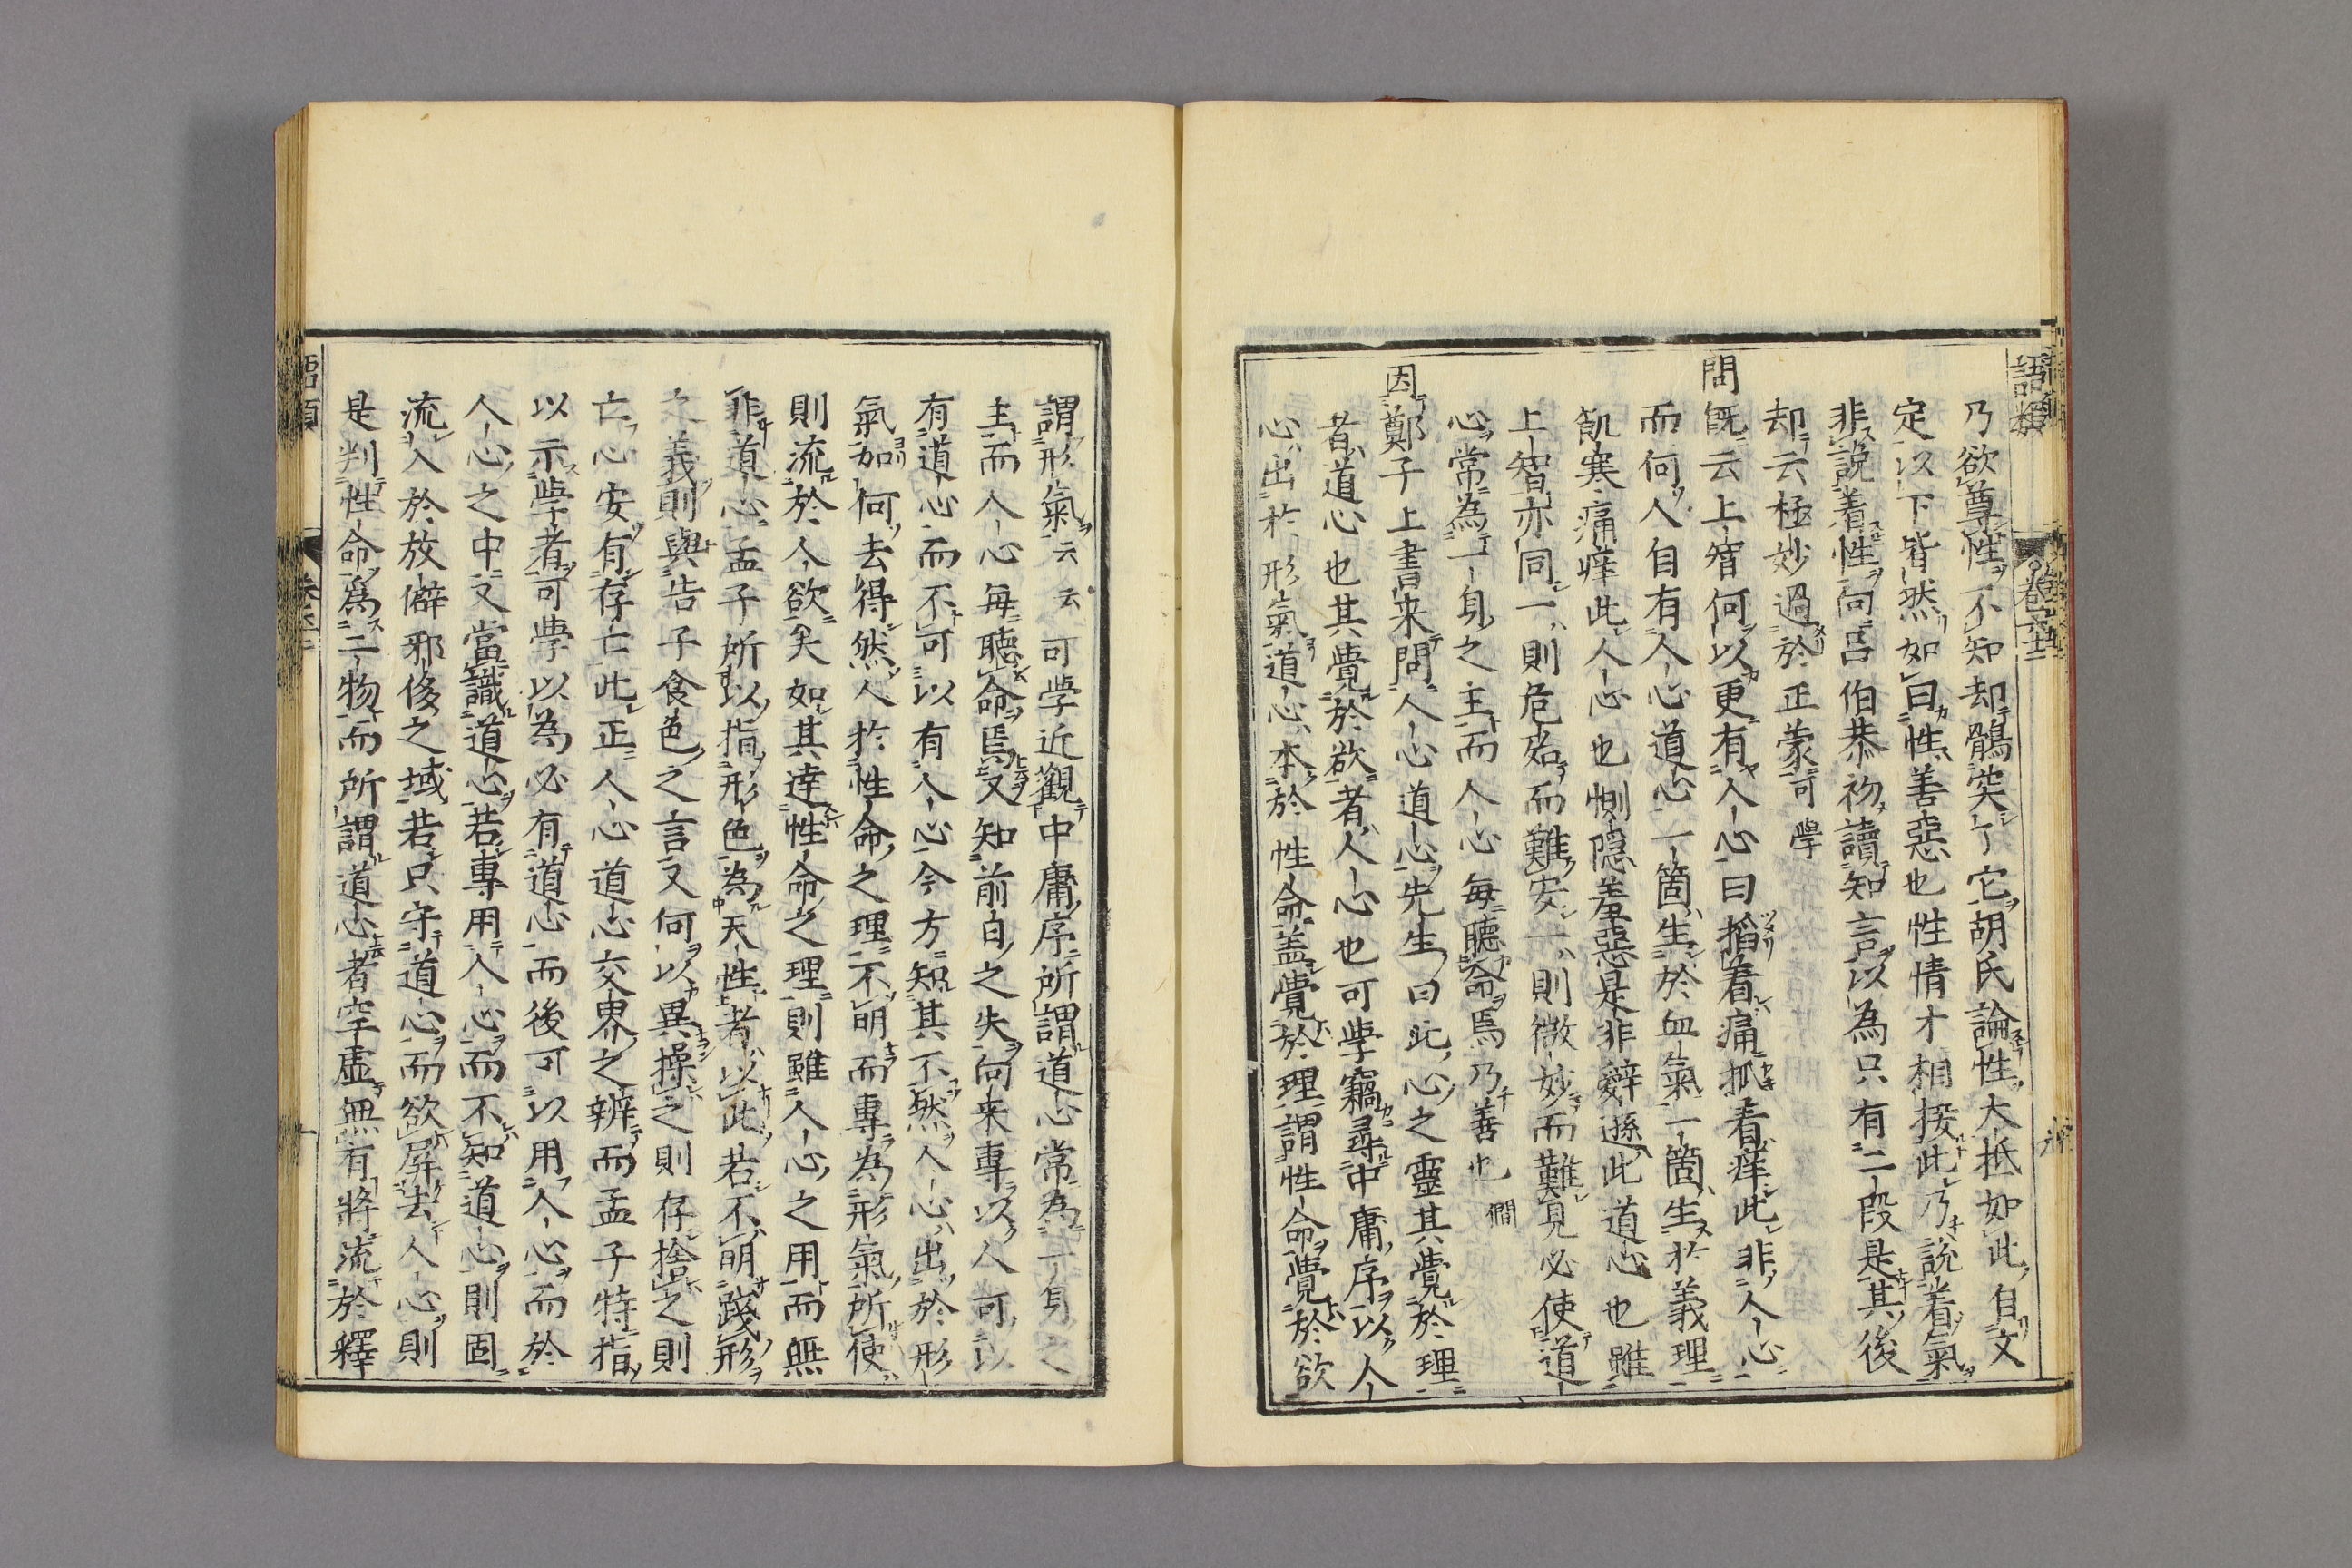 語類
卷六十二
乃欲尊性不知却鶻突了它胡氏論性大抵如此自文
定以下皆然如曰性善惡也性情才相接此乃說着氣
非說着性向呂伯恭初讀知言以為只有二段是其後
却云極妙過於正蒙可學
問既云上智何以更有人心曰掐着痛抓着痒此非人心
而何人自有人心道心一箇生於血氣一箇生於義理
飢寒痛痒此人心也惻隱羞惡是非辭遜此道心也雖
上智亦同一則危殆而難安一則微妙而難見必使道
心常為一身之主而人心每聽命焉乃善也僩
因鄭子上書来問人心道心先生曰此心之靈其覺於理
者道心也其覺於欲者人心也可學竊尋中庸序以人
心出於形氣道心本於性命蓋覺於理謂性命覺於欲
謂形氣云云可學近觀中庸序所謂道心常為一身之
主而人心每聽命焉又知前自之失向来專以人可以
有道心而不可以有人心今方知其不然人心出於形
氣如何去得然人於性命之理不明而專為形氣所使
則流於人欲矣如其達性命之理則雖人心之用而無
非道心孟子所以指形色為天性者以此若不明踐形
之義則與告子食色之言又何以異操之則存捨之則
亡心安有存亡此正人心道心交界之辨而孟子特指
以示學者可學以為必有道心而後可以用人心而於
人心之中又當識道心若專用人心而不知道心則固
流入於放僻邪侈之域若只守道心而欲屏去人心則
是判性命為二物而所謂道心者空虛無有將流於釋
語類